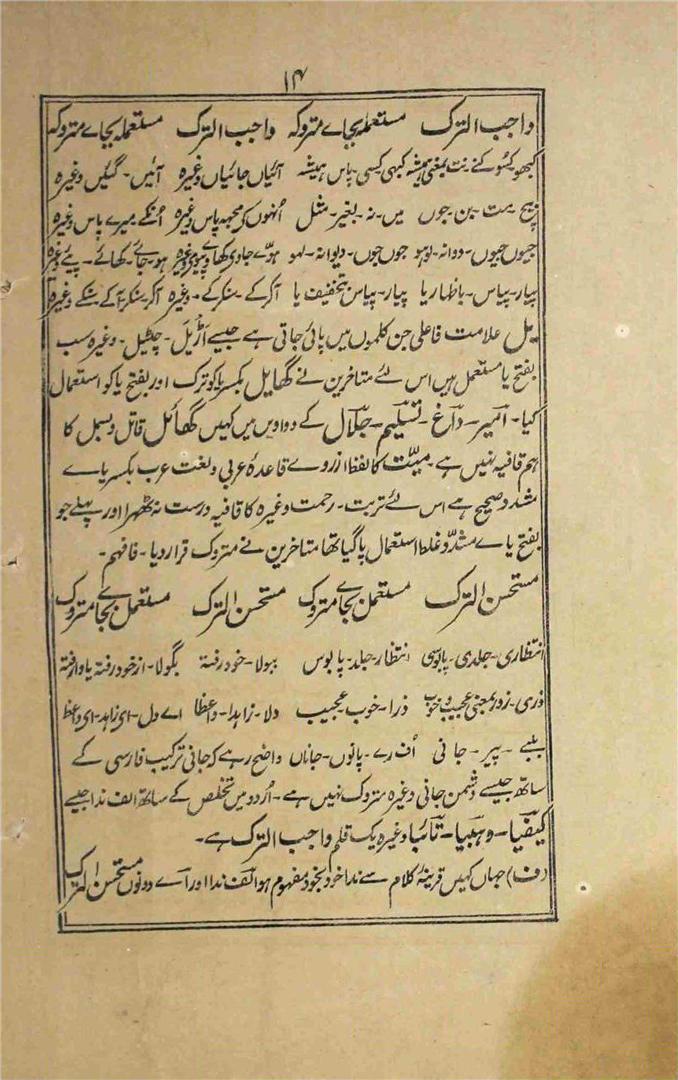 ۱۴
واجب الترک مستعملہ بجاے متروکہ واجب الترک مستعملہ بجاے متروکہ
کبھو کسُو کنے نت بمعنی ہمیشہ کبھی کسی پاس ہمیشہ آئیاں جائیاں وغیرہ آئیں۔ گئیں وغیرہ
بیچ۔ مت۔ بن۔ جوں میں۔ نہ۔ بغیر۔ مثل اُنھوں کی مجھ پاس وغیرہ اُنکے میرے پاس وغیرہ
جیوں جیوں۔ دوانہ۔ لوہو جوں جوں۔ دیوانہ۔ لہو ہوے جاوے کھاوے پیوے وغیرہ ہو۔ جاے۔ کھائے۔ پئے وغیرہ
پیار۔ پیاس۔ باظہار یا پیار۔ پیاس بتخفیف یا آکر کے۔ سنکر کے۔ وغیرہ آکر سنکر آکے سنکے وغیرہ
یل علامت فاعلی جن کلموں میں پائی جاتی ہے جیسے اڑیل۔ چٹیل۔ وغیرہ سب
بفتح یا مستعمل ہیں اس لئے متاخرین نے گھایل بکسر یا کو ترک اور بفتح یا کو استعمال
کیا۔ امیر۔ داغ۔ تسلیم۔ جلال کے دواوین میں کہیں گھائل قاتل و بسمل کا
ہم قافیہ نہیں ہے۔ میّت کا لفظ ازروے قاعدۂ عربی و لغت عرب بکسر یاے
مشدد صحیح ہے اس لئے تربت۔ رحمت وغیرہ کا قافیہ درست نہ ٹھہرا اور پہلے جو
بفتح یاے مشدّد غلط استعمال پا گیا تھا متاخرین نے متروک قرار دیا۔ فافہم۔
مستحسن الترک مستعمل بجاے متروک مستحسن الترک مستعمل بجاے متروک
انتظاری۔ جلدی۔ پابوسی انتظار۔ جلد۔ پابوس ببولا۔ خود رفتہ بگولا۔ از خود رفتہ یا وارفتہ
ذری۔ زور بمعنی عجیب و خوب ذرا۔ خوب عجیب دلا۔ زاہدا۔ واعظا اے دل۔ اے زاہد۔ اے واعظ
بلبے۔ پیر۔ جانی اُف رے۔ پانوں۔ جاناں واضح رہے کہ جانی ترکیب فارسی کے
ساتھ جیسے دشمن جانی وغیرہ متروک نہیں ہے۔ اُردو میں تخلص کے ساتھ الف ندا جیسے
کیفیا۔ وہبیا۔ تائبا وغیرہ یک قلم واجب الترک ہے۔
(ف) جہاں کہیں قرینۂ کلام سے ندا خود بخود مفہوم ہو الف ندا اور اے دونوں مستحسن الترک